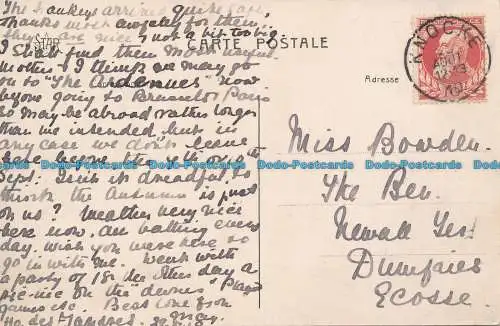 The Hankeys arrived quite safe,
Thanks most awfully for them,
they are nice, not a bit too big.
I shall find them most useful.
Mother & I think we may go
to "The Ardennes" now
before going to Bruxelles Paris
so may be abroad rather longer
than we intended, but in
any case we don't leave
here before the
Sept: Isn't it dreadful to
think the Autumn is just
on us? Weather very nice
here now, am bathing every
day. Wish you were here to
go in with me. Went with
a party of 18 the other day a
pic-nic on the "dunes" Played
games etc. Best love from
May.
STAR
CARTE POSTALE
Adresse
KNOCKE
AOUT
Miss Bowden.
The Ben.
Newall Ter.
Dumfries
Ecosse.
Dodo-Postcards Dodo-Postcards Dodo-Postcards Dodo-Postcards Dodo-Postcards